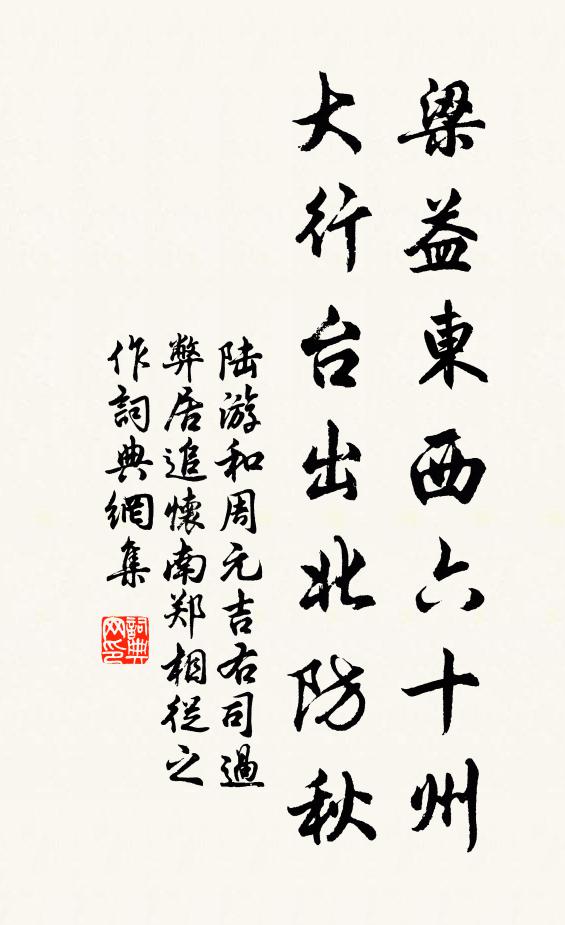 梁益東西六十州
大行台出北防秋
陆游和周元吉右司過
弊居追懷南郑相從之
作詞典網集
詞典网印